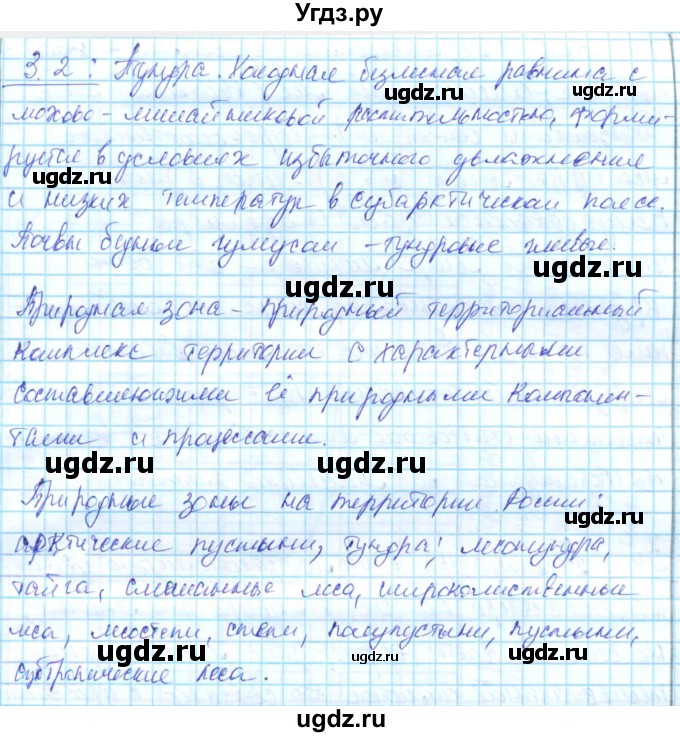 Угдз.ру
3.2: Тундра. Холодная безлесная равнина с
ugdz.ru ugdz.ru
мохово-лишайниковой растительностью, форми-
руется в условиях избыточного увлажнения
ugdz.ru ugdz.ru
и низких температур в субарктическом поясе.
Почвы бедные гумусом - тундровые глеевые.
ugdz.ru ugdz.ru
Природная зона - природный территориальный
ugdz.ru
комплекс территории с характерными
ugdz.ru
составляющими её природными компонен-
ugdz.ru
тами и процессами.
ugdz.ru ugdz.ru
Природные зоны на территории России:
ugdz.ru
арктические пустыни, тундра, лесотундра,
ugdz.ru ugdz.ru
тайга, смешанные леса, широколиственные
леса, лесостепи, степи, полупустыни, пустыни,
ugdz.ru ugdz.ru ugdz.ru
субтропические леса.
ugdz.ru